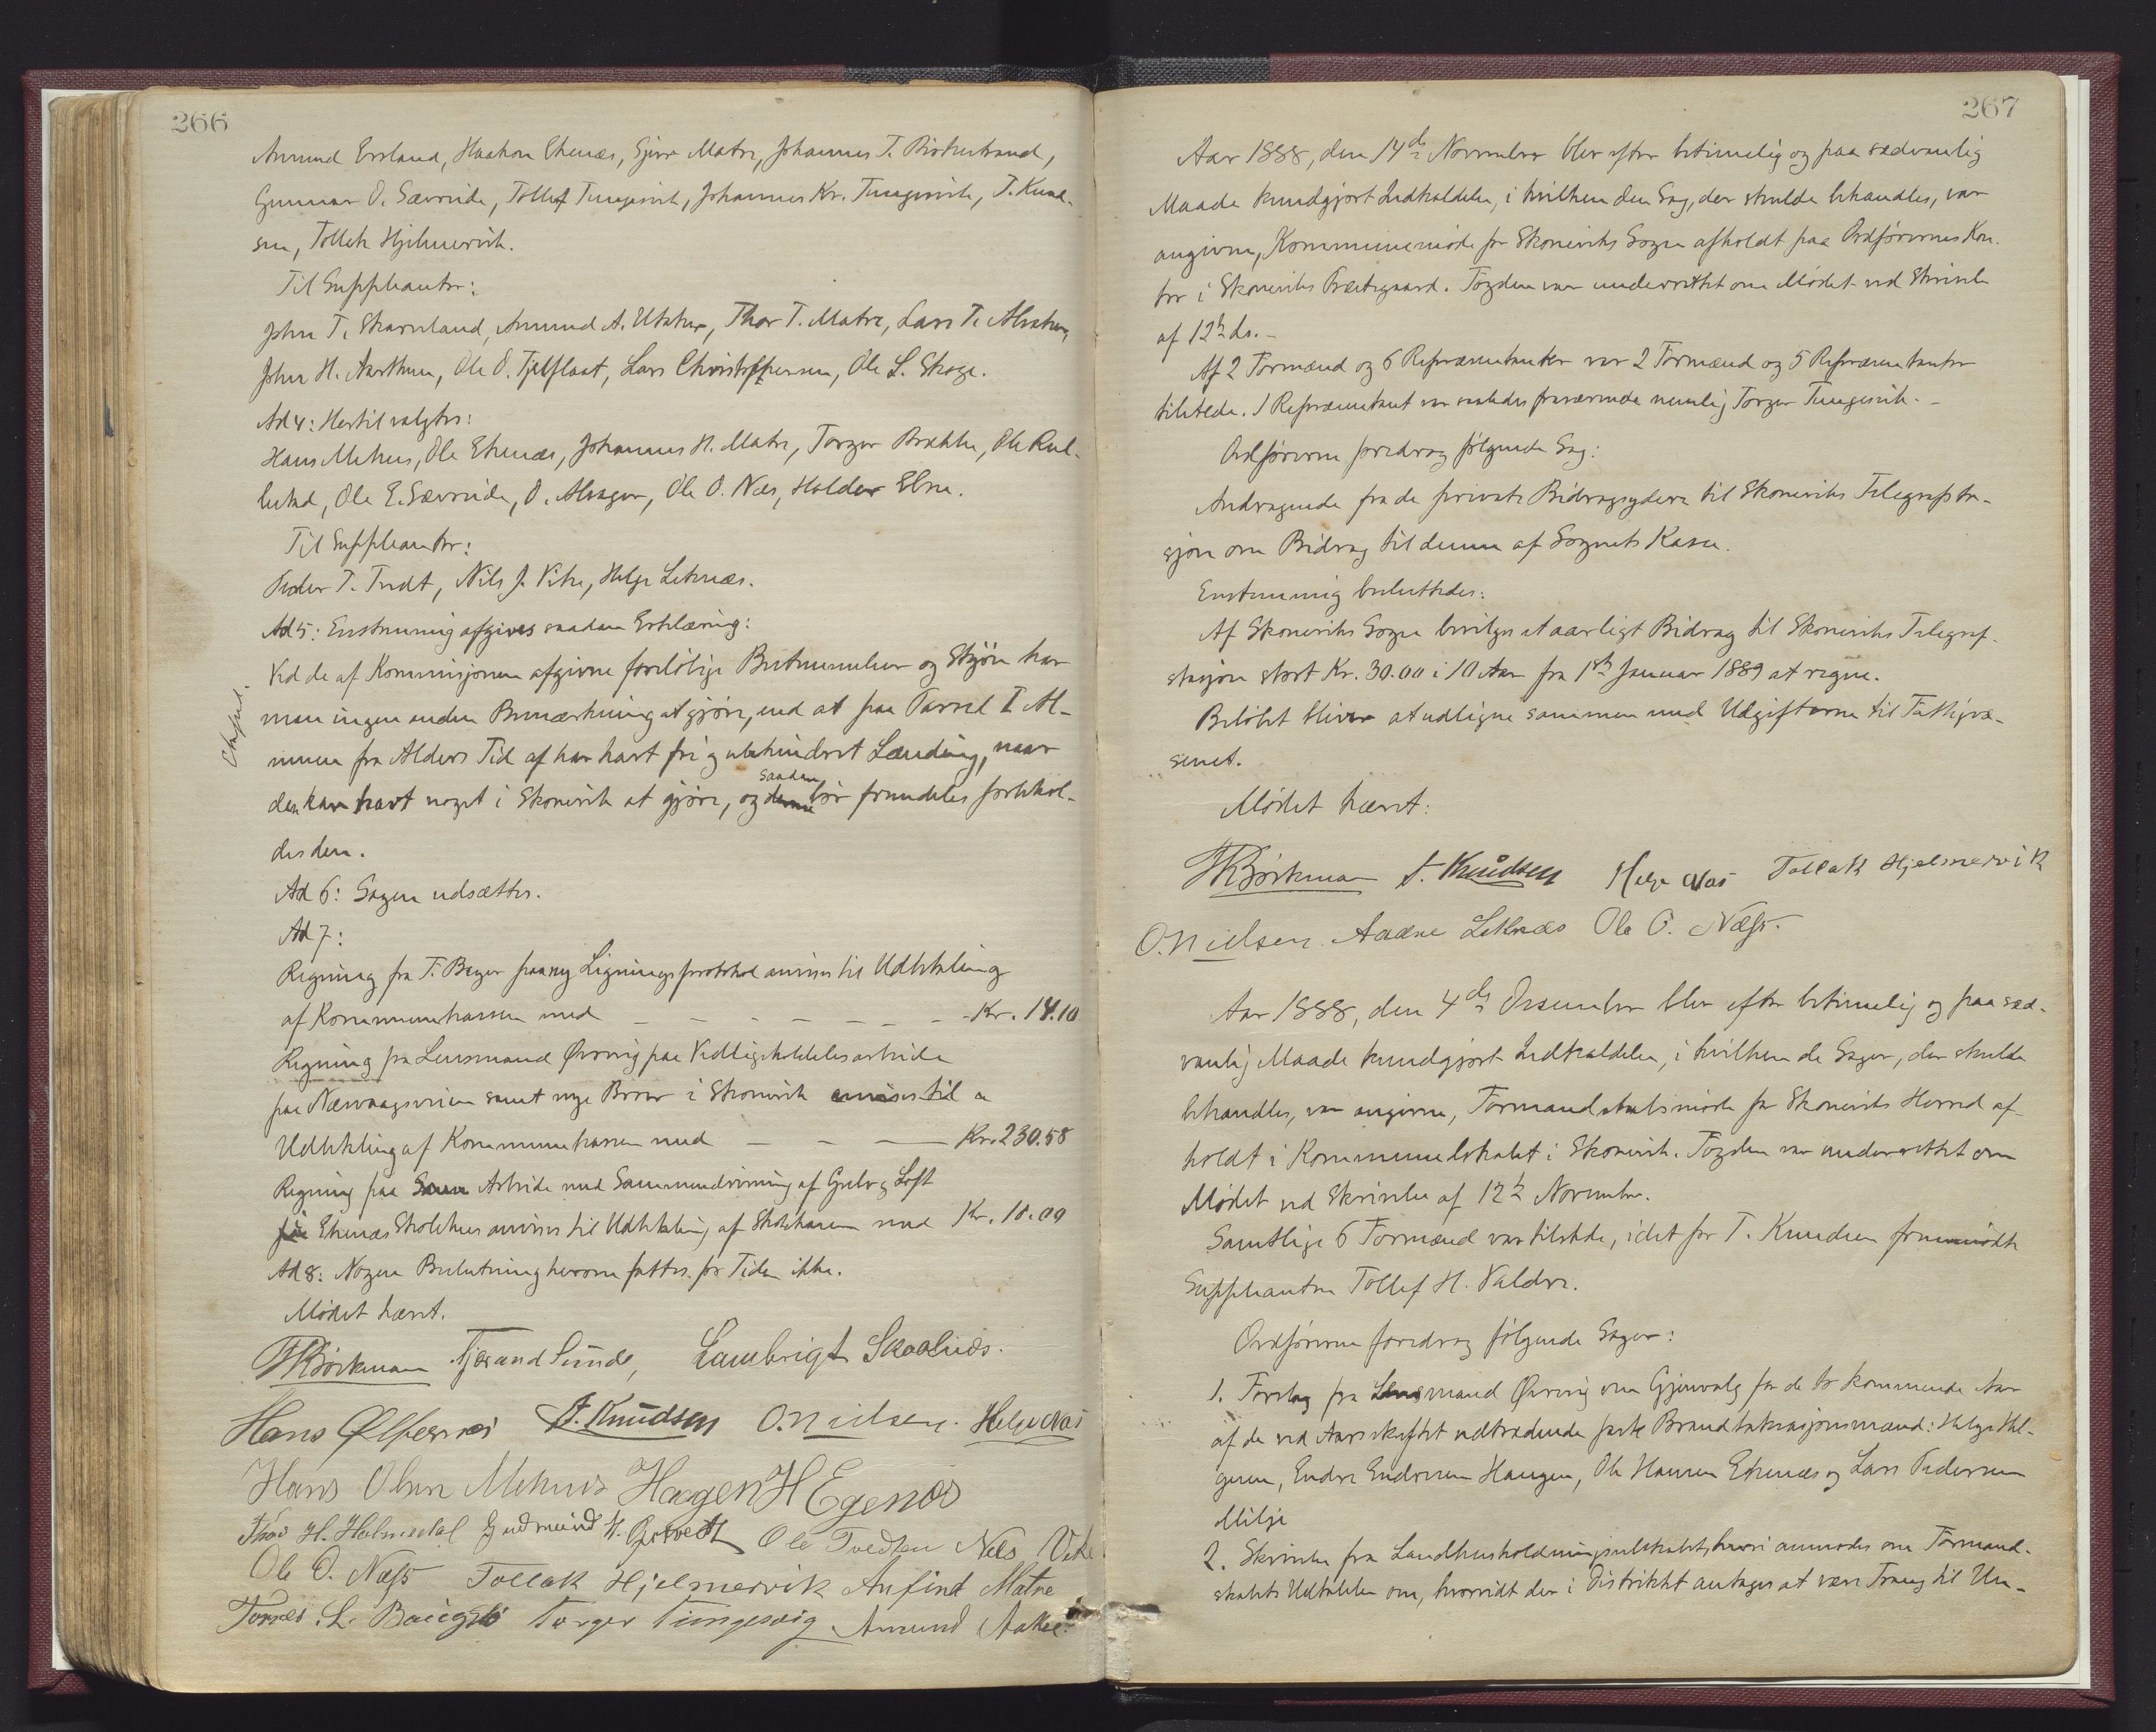 266
Amund Ersland, Haakon Ekenæs, Sjur Matre, Johannes T. Birkestrand,
Gunnar O. Sævreide, Tollef Tungesvik, Johannes Kr. Tungesvik, T. Knud-
sen, Tollak Hjelmervik.
Til Suppleanter:
John T. Skarveland, Amund A. Utaker, Thor T. Matre, Lars T. Alsaker,
John H. Aarthun, Ole O. Fjelstaat, Lars Christoffersen, Ole L. Skage.
Ad 4: Hertil valgtes:
Hans Mehus, Ole Ekenæs, Johannes H. Matre, Torger Brække, Ole Rul-
lestad, Ole E. Sævreide, O. Alsager, Ole O. Næs, Haldor Ebne.
Til Suppleanter:
Peder T. Tvedt, Nils J. Vike, Helge Leknæs.
Ad 5: Enstemmig afgives saadan Erklæring:
Ved de af Kommisjonen afgivne foreløbige Bestemmelser og Skjøn har
man ingen anden Bemærkning at gjøre, end at paa Parcel I Al-
menn fra Alders Tid af har havt fri og uhindret Landing, naar
den har havt noget i Skonevik at gjøre, og denne saadan bør fremdeles forbehol-
des den.
Ad 6: Sagen udsættes.
Ad 7:
Regning fra F. Beyer paa ny Ligningsprotokol anvises til Udbetaling
af Kommunekassen med - - - - - - - Kr. 14.10
Regning fra Lensmand Øvrevig paa Vedligeholdelsesarbeide
paa Nærvaagsveien samt nye Broer i Skonevik anvises til a
Udbetaling af Kommunekassen med - - - Kr. 230.58
Regning paa Arbeide med Sammendrivning af Gulv og Loft
Ekenæs Skolehus anvises til Udbetaling af Skolekassen med Kr. 10.00
Ad 8: Nogen Beslutning herom fattes for Tiden ikke.
Mødet hævet.
Børkman Tjerand Sunde, Lambrigt Skaalnæs.
Hans Ølfernæs T. Knudsen O. Nielsen. Helge Næs
Hans Olsen Mehus Hagen H Egenæs
Thor H. Holmedal Gudmund H. Ole Tvedten Nils Vike
Ole O. Næss Tollak Hjelmervik Anfind Matre
L. Baugstø Torger Tungesvig Amund Aakre
267
Aar 1888, den 14de November blev efter betimelig og paa sædvanlig
Maade kundgjort Indkaldelse, i hvilken den Sag, der skulde behandles, var
angiven, Kommunemøde for Skoneviks Sogn afholdt paa Ordførerens Kon-
tor i Skoneviks Præstegaard. Fogden var underrettet om Mødet ved Skrivelse
af 12te ds. -
Af 2 Formænd og 6 Repræsentanter var 2 Formænd og 5 Repræsentanter
tilstede. 1 Repræsentant var saaledes fraværende nemlig Torger Tungesvik. -
Ordføreren foredrog følgende Sag:
Andragende fra de private Bidragsydere til Skoneviks Telegrafsta-
sjon om Bidrag til denne af Sognets Kasse.
Enstemmig besluttedes:
Af Skoneviks Sogn bevilges et aarligt Bidrag til Skoneviks Telegraf-
stasjon stort Kr. 30.00 i 10 Aar fra 1ste Januar 1889 at regne.
Beløbet bliver at udligne sammen med Udgifterne til Fattigvæ-
senet.
Mødet hævet:
Børkman T. Knudsen Helge Næs Tollak Hjelmervik
O. Nielsen. Aadne Leknæs Ole O. Næss.
Aar 1888, den 4de Desember blev efter betimelig og paa sæd-
vanlig Maade kundgjort Indkaldelse, i hvilken de Sager, der skulde
behandles, var angivne, Formandskabsmøde for Skoneviks Herred af-
holdt i Kommunelokalet i Skonevik. Fogden var underrettet om
Mødet ved Skrivelse af 12te November.
Samtlige 6 Formænd var tilstede, idet for T. Knudsen fremmødte
Suppleanten Tollef H. Valdre.
Ordføreren foredrog følgende Sager:
1. Forslag fra Lensmand Øvrevig om Gjenvalg for de to kommende Aar
af de ved Aarsskiftet udtrædende faste Brandtaksasjonsmænd: Helge Hel-
gesen, Endre Endresen Haugen, Ole Hansen Ekenæs og Lars Pedersen
Milje
2. Skrivelse fra Landhusholdningsselskabet, hvori anmodes om Formand-
skabets Udtalelse om, hvorvidt der i Distriktet antages at være Trang til Un-